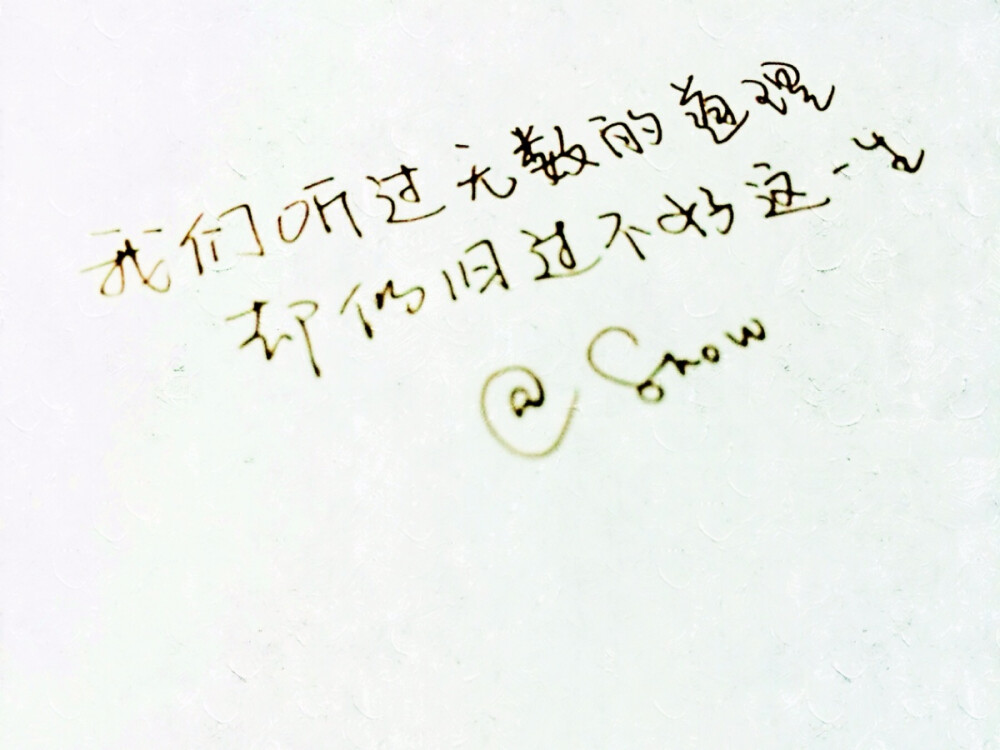 我们听过无数的道理
却仍旧过不好这一生
@ Snow